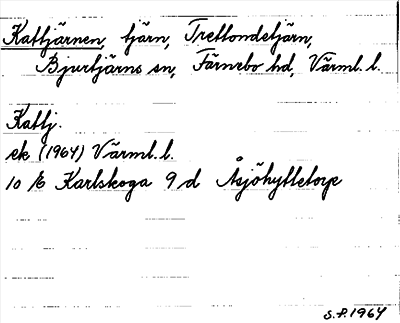 Kattjärnen, tjärn, Trettondetjärn,
Bjurtjärns sn, Färnebo hd, Värml. l.
Kattj.
ek (1964) Värml. l.
10 E Karlskoga 9 d Åsjöhyttetorp
S.P. 1964